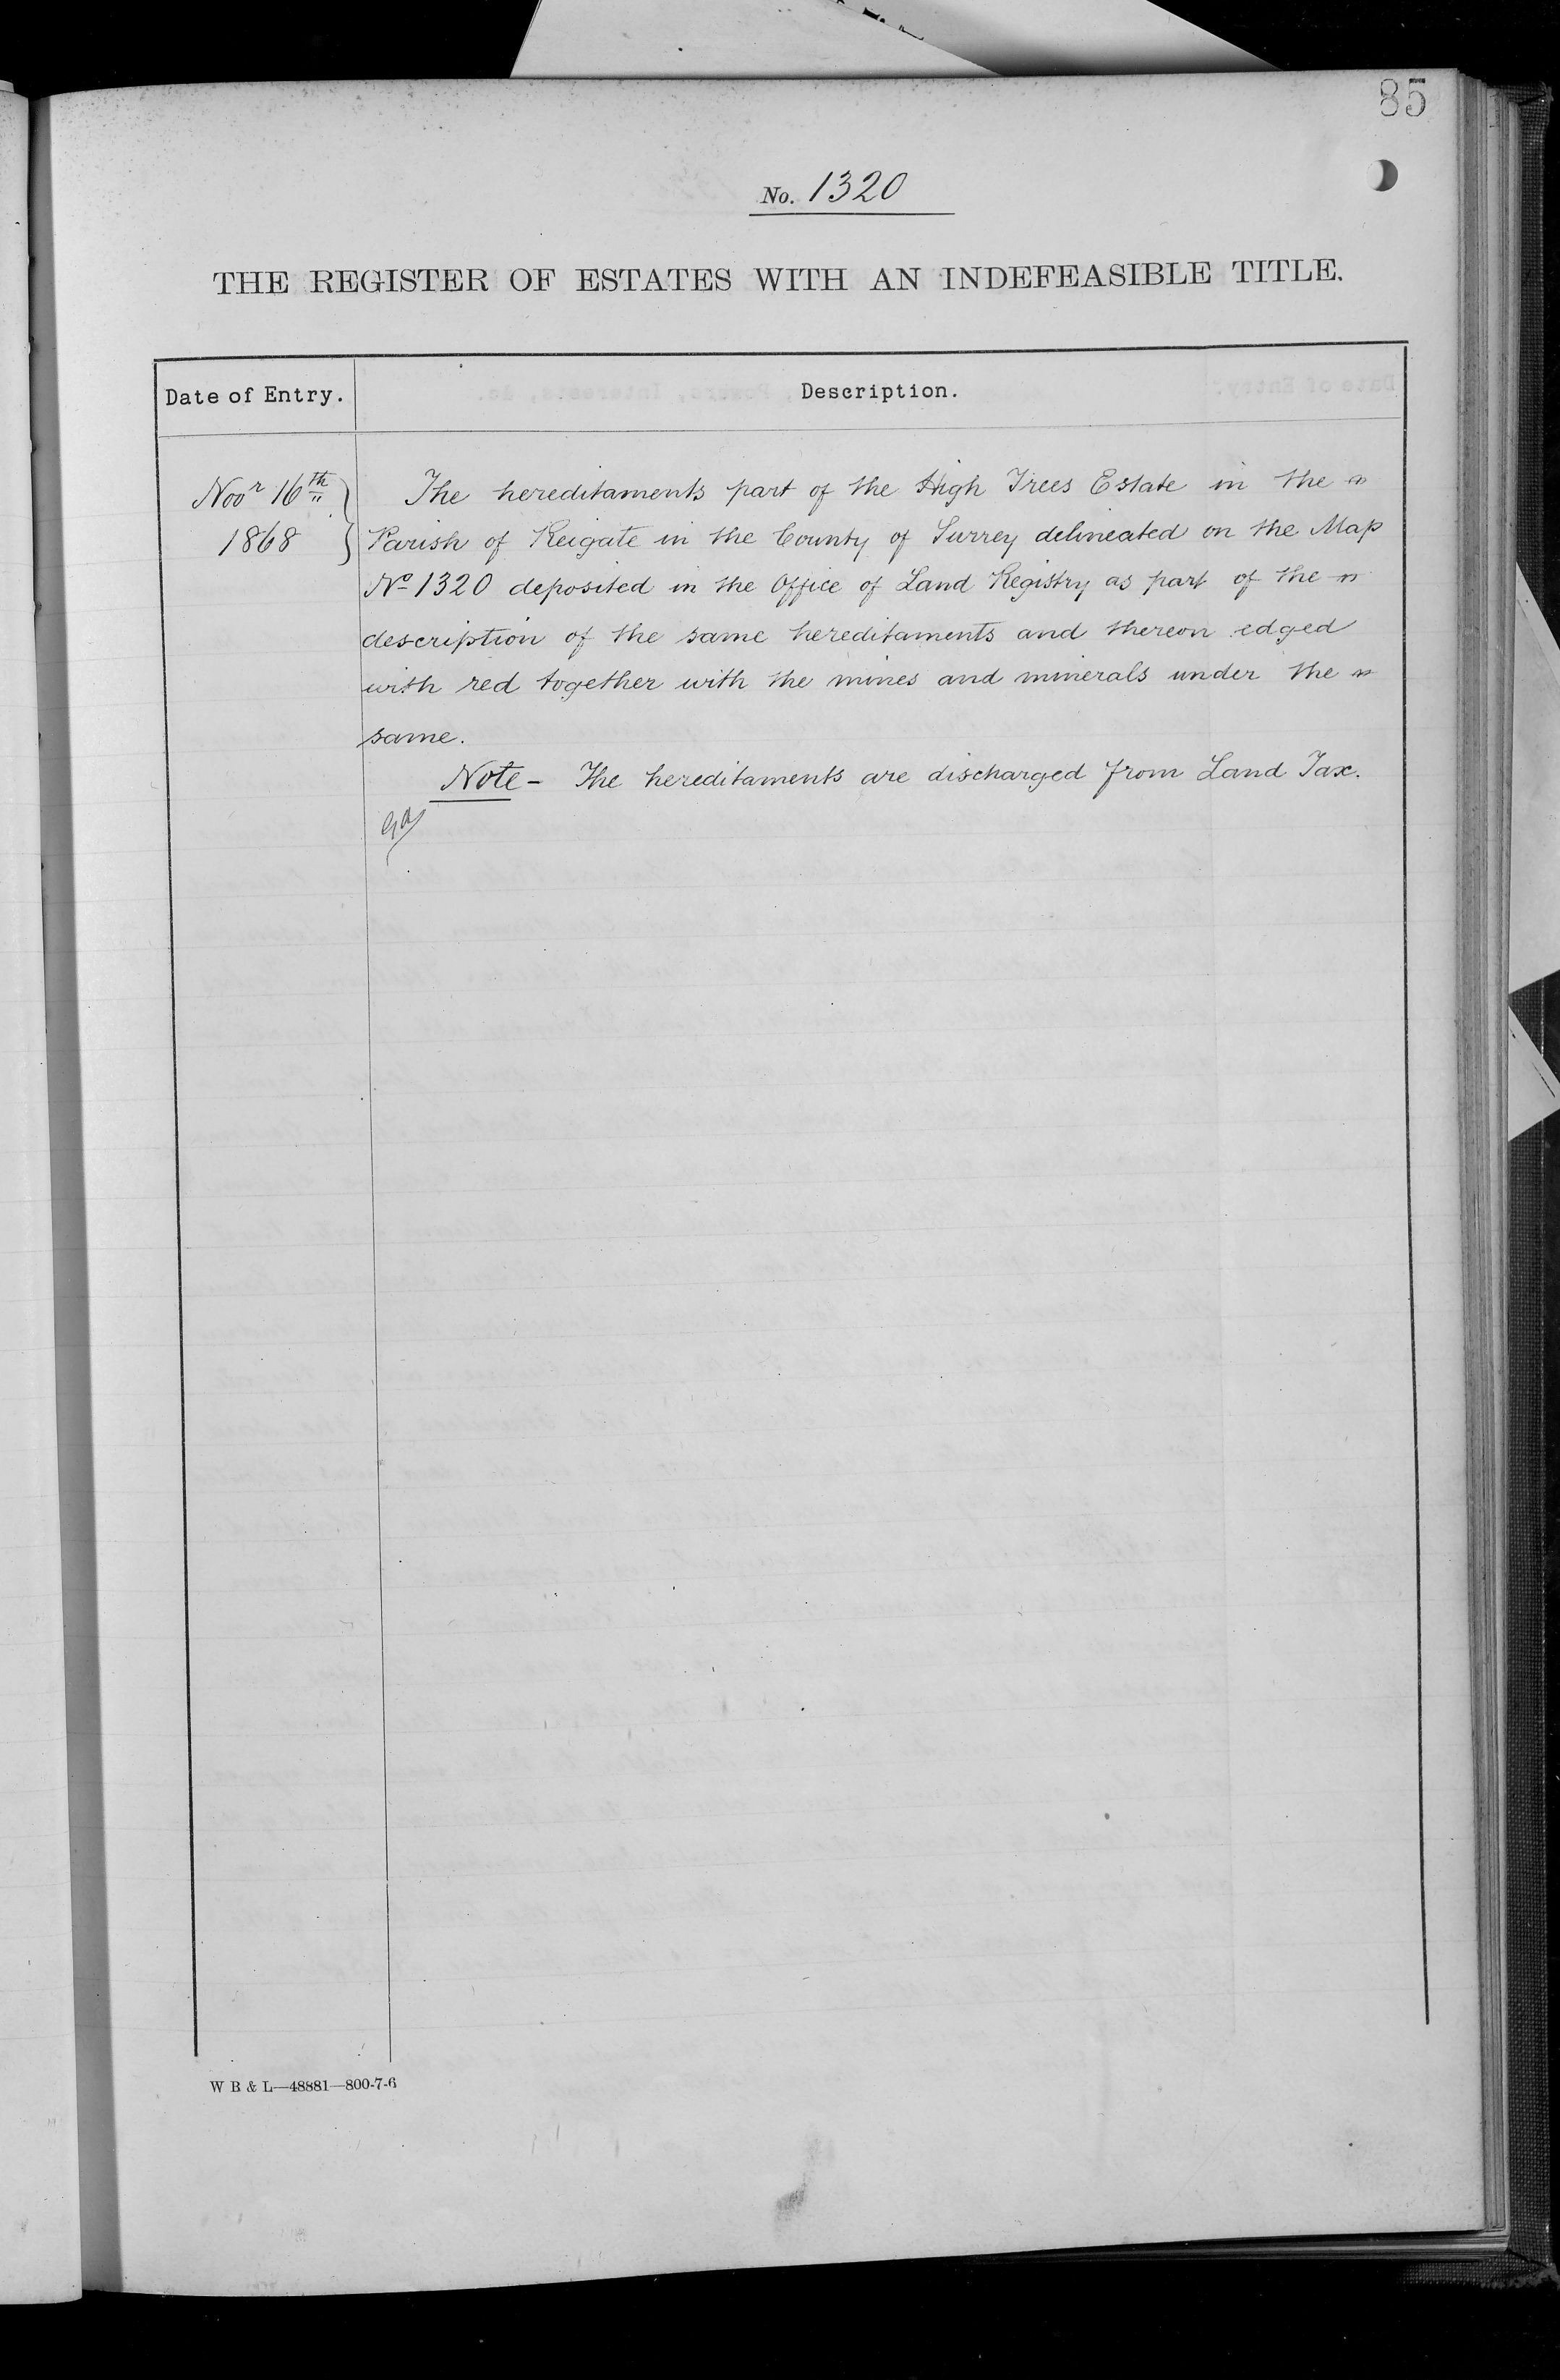 85
No. 1320
THE REGISTER OF ESTATES WITH AN INDEFEASIBLE TITLE.
Date of Entry. Description.
Novr 16th 1868
The hereditaments part of the High Trees Estate in the
Parish of Reigate in the County of Surrey delineated on the Map
No 1320 deposited in the Office of Land Registry as part of the
description of the same hereditaments and thereon edged
with red together with the mines and minerals under the
same.
Note - The hereditaments are discharged from Land Tax.
W B & L—48881—800-7-6